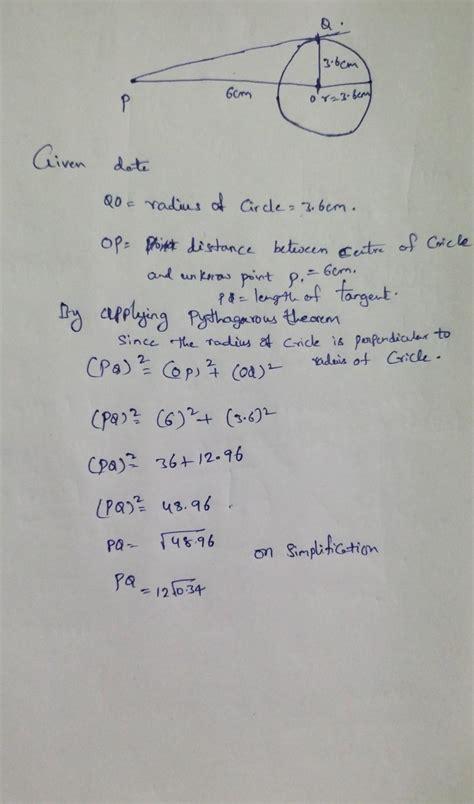 Q .
3.6cm
P
6cm
O r=3.6cm
Given date
QO = radius of Circle = 3.6cm.
OP= distance between Centre of Circle
and unknow point P. = 6cm.
PQ = length of Tangent.
By applying Pythagarous theorem
Since the radius of Cricle is perpendicular to
radius of Cricle.
(PQ)² = (OP)² + (OQ)²
(PQ)² = (6)² + (3.6)²
(PQ)² = 36 + 12.96
(PQ)² = 48.96 .
PQ = √48.96
on Simplification
PQ = 12√0.34